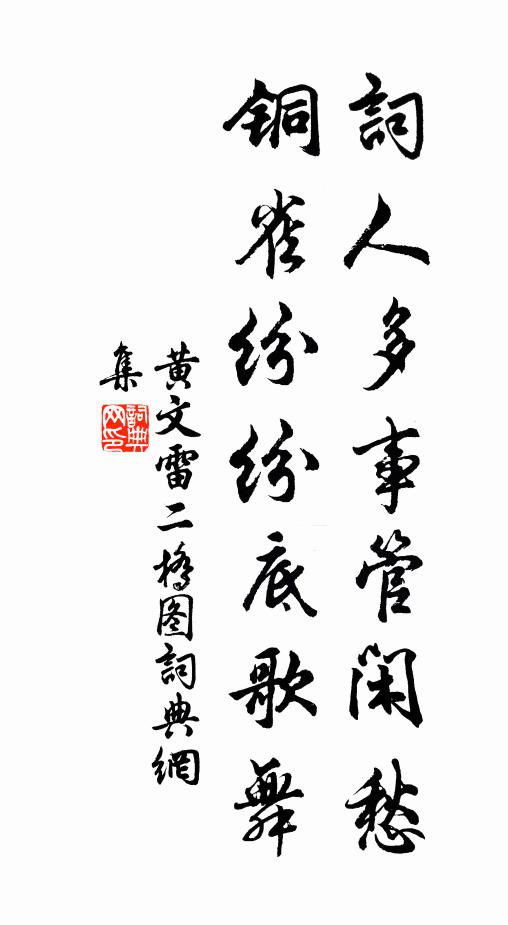 詞人多事管閑愁
銅雀紛紛底歌舞
黄文雷二橋图詞典網
集
詞典网印